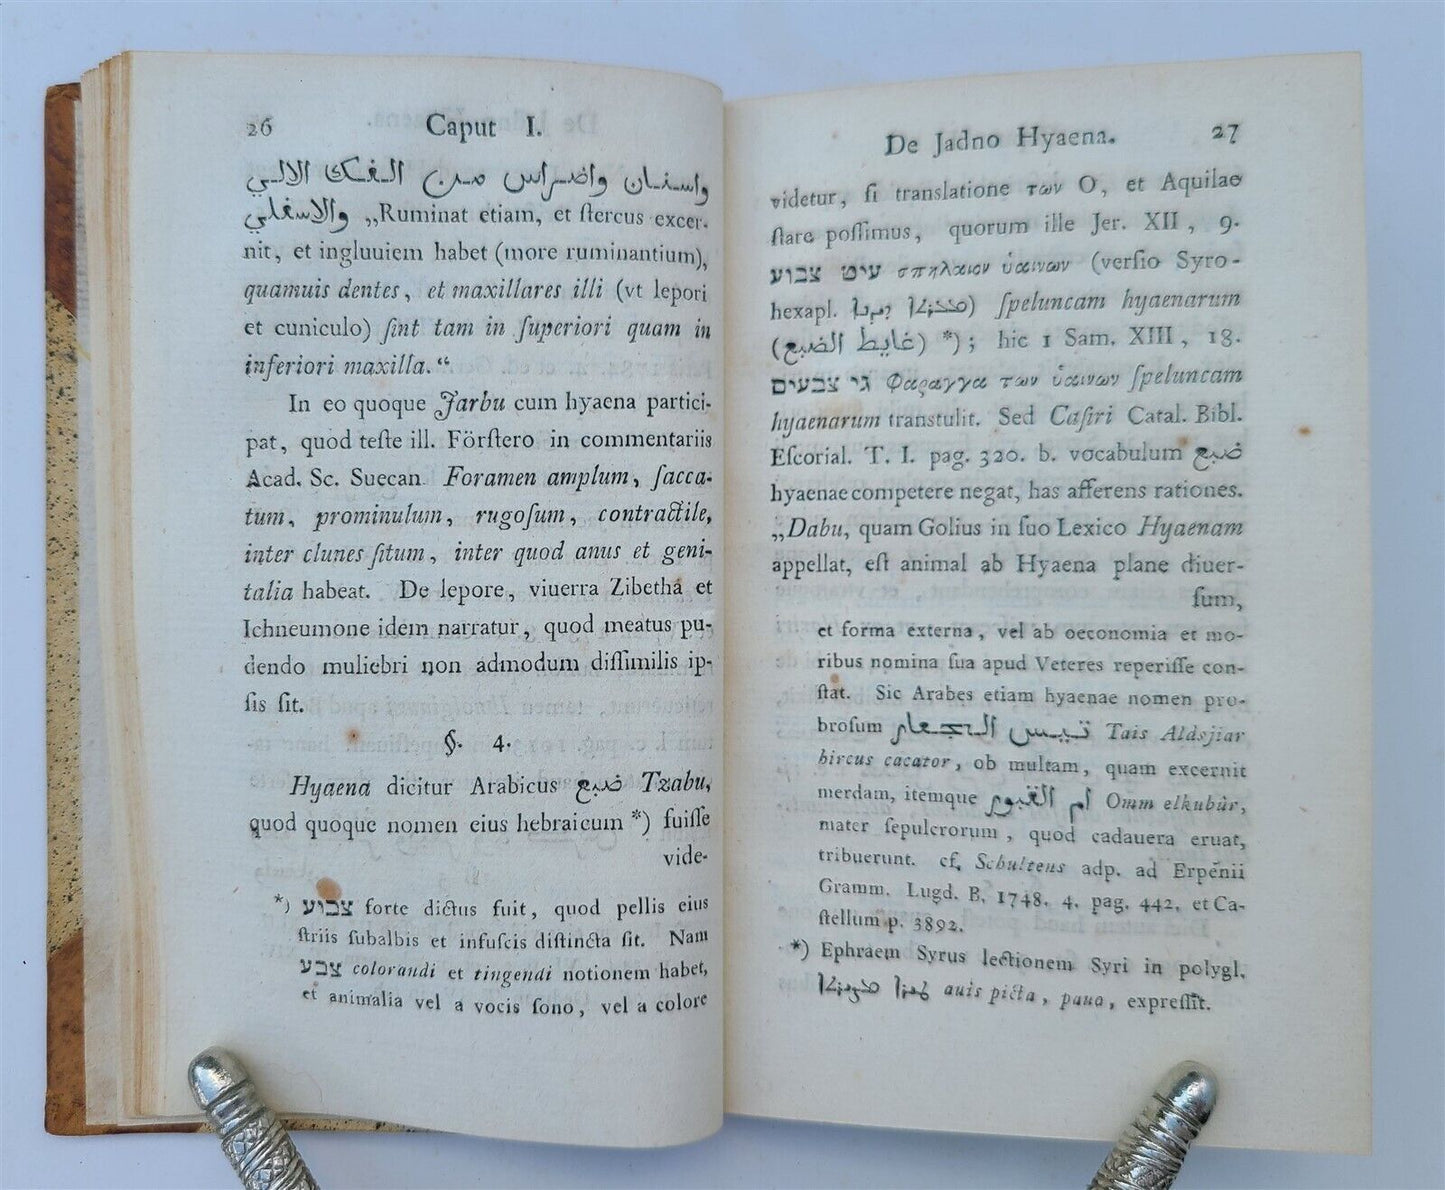 26 Caput I.
واسنان واضراس من الفكك الالي
والاسفلي „Ruminat etiam, et ſtercus excer-
nit, et ingluuiem habet (more ruminantium),
quamuis dentes, et maxillares illi (vt lepori
et cuniculo) ſint tam in ſuperiori quam in
inferiori maxilla.“
In eo quoque Jarbu cum hyaena partici-
pat, quod teſte ill. Förſtero in commentariis
Acad. Sc. Suecan. Foramen amplum, ſacca-
tum, prominulum, rugoſum, contractile,
inter clunes ſitum, inter quod anus et geni-
talia habeat. De lepore, viuerra Zibetha et
Ichneumone idem narratur, quod meatus pu-
dendo muliebri non admodum diſſimilis ip-
ſis ſit.
§. 4.
Hyaena dicitur Arabicus ضبع Tzabu,
quod quoque nomen eius hebraicum *) fuiſſe
vide-
*) צבוע forte dictus fuit, quod pellis eius
ſtriis ſubalbis et infuſcis diſtincta ſit. Nam
צבע colorandi et tingendi notionem habet,
et animalia vel a vocis ſono, vel a colore
De Jadno Hyaena. 27
videtur, ſi translatione των O, et Aquilae
ſtare poſſimus, quorum ille Jer. XII, 9.
עיט צבוע σπηλαιον ὑαινων (verſio Syro-
hexapl.) ſpeluncam hyaenarum
(غايط الضبع) *); hic 1 Sam. XIII, 18.
גי צבעים Φαραγγα των ὑαινων ſpeluncam
hyaenarum transtulit. Sed Caſiri Catal. Bibl.
Eſcorial. T. I. pag. 320. b. vocabulum ضبع
hyaenae competere negat, has afferens rationes.
„Dabu, quam Golius in ſuo Lexico Hyaenam
appellat, eſt animal ab Hyaena plane diuer-
ſum,
et forma externa, vel ab oeconomia et mo-
ribus nomina ſua apud Veteres reperiſſe con-
ſtat. Sic Arabes etiam hyaenae nomen pro-
broſum تيس الجعار Tais Aldsjiar
hircus cacator, ob multam, quam excernit
merdam, itemque ام القبور Omm elkubûr,
mater ſepulcrorum, quod cadauera eruat,
tribuerunt. cf. Schultens adp. ad Erpenii
Gramm. Lugd. B. 1748. 4. pag. 442. et Ca-
ſtellum p. 3892.
*) Ephraem Syrus lectionem Syri in polygl.
auis picta, paua, expreſſit.